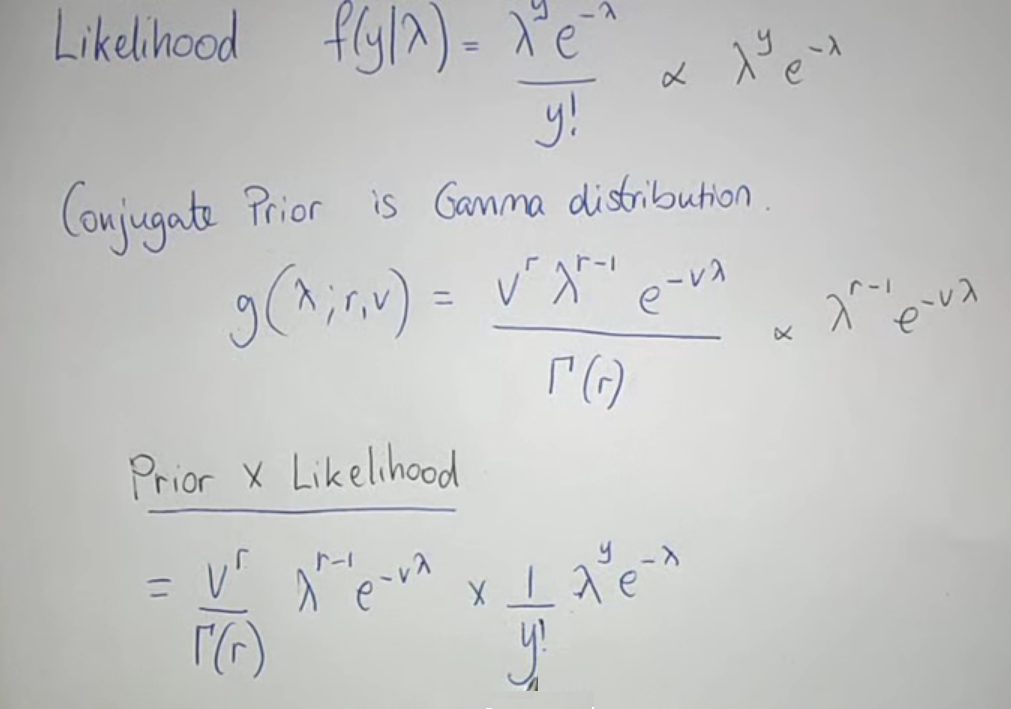 Likelihood f(y|λ) = λ^y e^{-λ} / y! ∝ λ^y e^{-λ}
Conjugate Prior is Gamma distribution.
g(λ; r, v) = v^r λ^{r-1} e^{-vλ} / Γ(r) ∝ λ^{r-1} e^{-vλ}
Prior x Likelihood
= v^r / Γ(r) λ^{r-1} e^{-vλ} x 1 / y! λ^y e^{-λ}